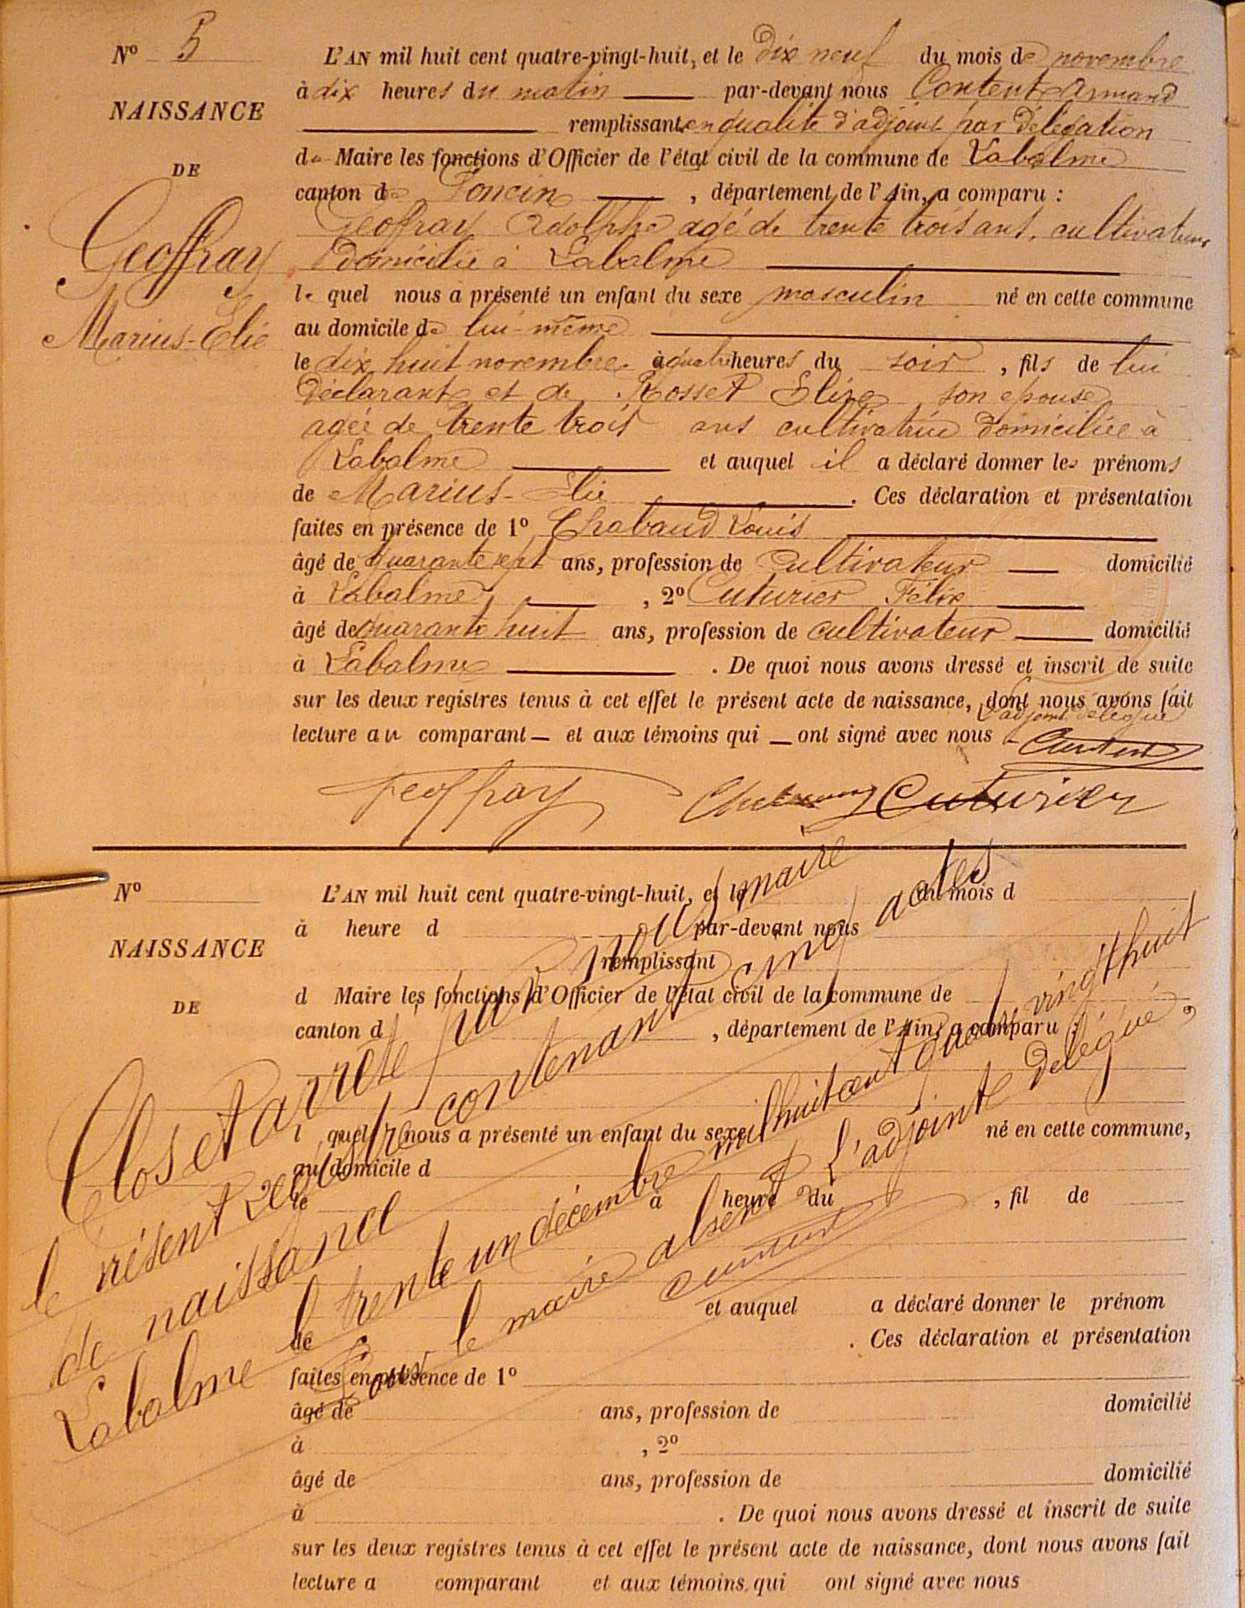 N° 5
NAISSANCE
DE
Geoffray
Marius-Elie
L'AN mil huit cent quatre-vingt-huit, et le dix neuf du mois de novembre
à dix heures du matin par-devant nous Content Armand
remplissant en qualité d'adjoint par délégation
de Maire les fonctions d'Officier de l'état civil de la commune de Labalme
canton de Poncin , département de l'Ain, a comparu :
Geoffray Adolphe agé de trente trois ans, cultivateur
domicilié à Labalme
le quel nous a présenté un enfant du sexe masculin né en cette commune
au domicile de lui-même
le dix huit novembre à quatre heures du soir , fils de lui
Déclarant et de Rosset Elise son epouse
agée de trente trois ans cultivatrice domiciliée à
Labalme et auquel il a déclaré donner les prénoms
de Marius-Elie . Ces déclaration et présentation
faites en présence de 1° Chabaud Louis
âgé de quarante sept ans, profession de cultivateur domicilié
à Labalme , 2° Cuturier Félix
âgé de quarante huit ans, profession de cultivateur domicilié
à Labalme . De quoi nous avons dressé et inscrit de suite
sur les deux registres tenus à cet effet le présent acte de naissance, dont nous avons fait
L'adjoint délégué
lecture au comparant et aux témoins qui ont signé avec nous Content
Geoffray Cuturier
N°
NAISSANCE
DE
L'AN mil huit cent quatre-vingt-huit, et le du mois d
à heure d par-devant nous
remplissant
d Maire les fonctions d'Officier de l'état civil de la commune de
canton d , département de l'Ain, a comparu :
l quel nous a présenté un enfant du sexe né en cette commune,
au domicile d
le à heure du , fil de
et auquel a déclaré donner le prénom
de . Ces déclaration et présentation
faites en présence de 1°
âgé de ans, profession de domicilié
à , 2°
âgé de ans, profession de domicilié
à . De quoi nous avons dressé et inscrit de suite
sur les deux registres tenus à cet effet le présent acte de naissance, dont nous avons fait
lecture a comparant et aux témoins qui ont signé avec nous
Clos et arrêté par nous maire
le présent Registre contenant cinq actes
de naissance
Labalme le trente un décembre mil huit cent quatre vingt huit
Pour le maire absent L'adjoint délégué,
Content